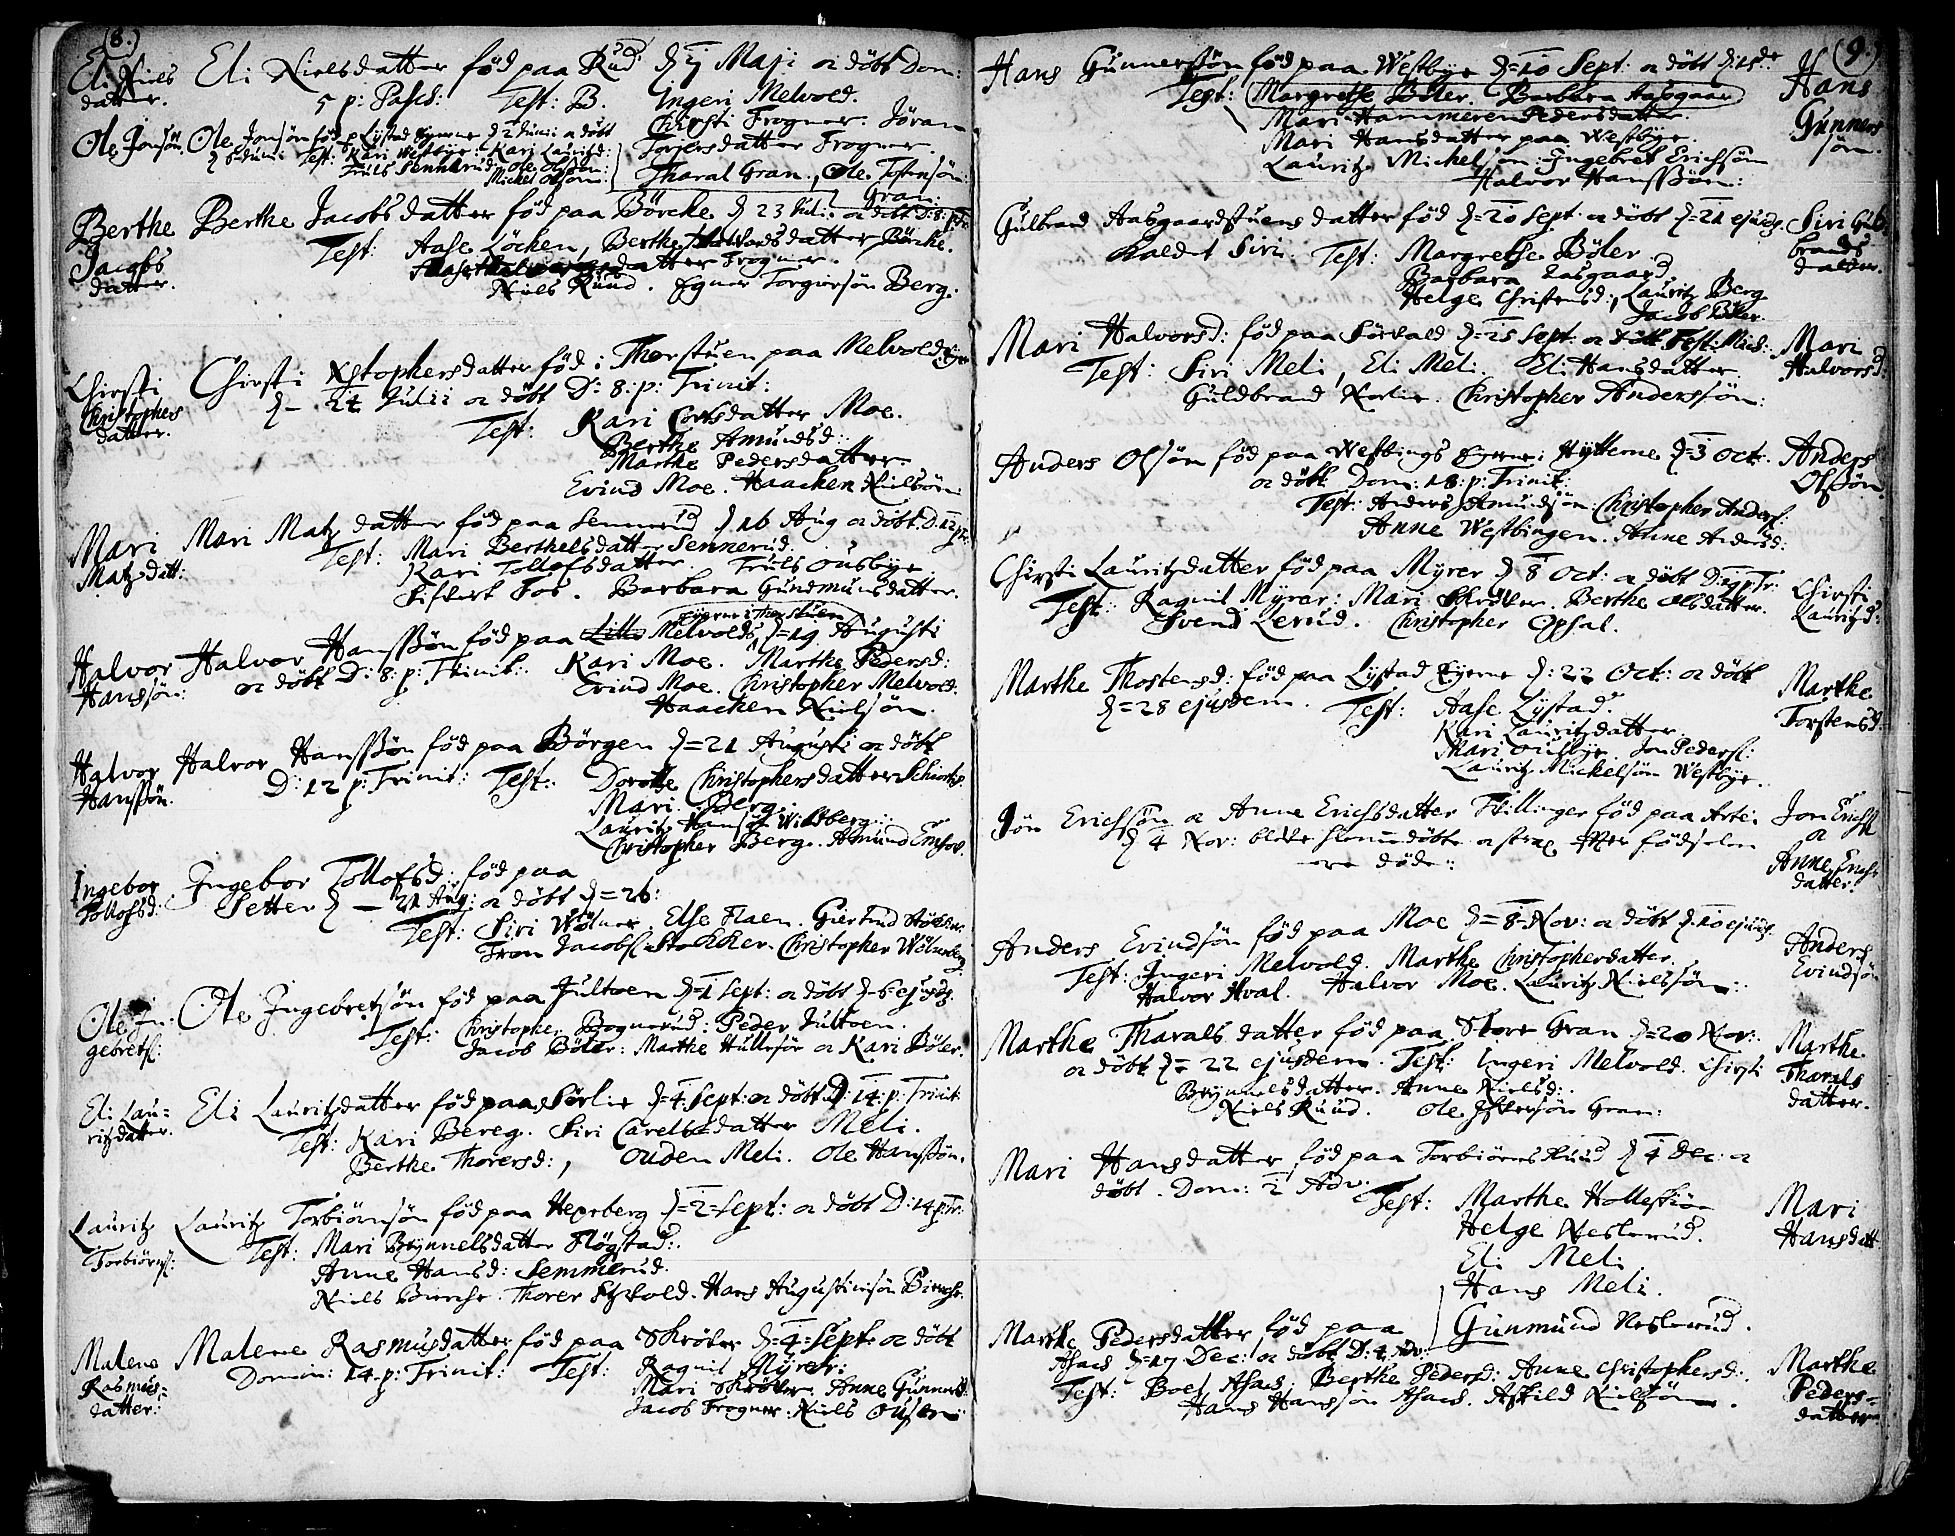 (8.)
Eli Niels
datter.
Eli Nielsdatter fød paa Rud d 7 Maji oc døbt Dom:
5 p: Pasch: Test: B. Ingeri Melvold.
Chirsti Frogner. Jøran
Torgersdatter Frogner.
Tharal Gran, Ole Tostensøn
Gran.
Ole Jonsøn
Ole Jonsøn fød p Lystad Eyerne d 2 Junii oc døbt
Test: Kari Westbye. Kari Lauritzd:
Truls Sennerud. Ole Olsøn
Michel Olsøn
Berthe
Jacobs
datter.
Berthe Jacobsdatter fød paa Børcke d 23 Juli: oc døbt D: 8:
Test: Aase Løcken, Berthe datter Børcke.
datter Frogner.
Niels Ruud. Torgiersøn Berg.
Chirsti
Christophers
datter.
Chirsti Xstophersdatter fød i Thorstuen paa Melvold
d 24 Julii oc døbt D: 8: p: Trinit:
Test: Kari Cortsdatter Moe.
Berthe Amundsd:
Marthe Pedersdatter.
Evind Moe. Haacken Nielsøn
Mari
Matzdatt:
Mari Matzdatter fød paa Sennerud d 16 Aug oc døbt D. 12 p.
Test: Mari Berthelsdatter Sennerud.
Kari Tollofsdatter. Truls Ousbye.
Sifvert Fos. Barbara Gundmunsdatter.
Halvor
Hanssøn:
Eyerne i Thorstuen
Halvor Hanssøn fød paa Lille Melvold d=19 Augusti
oc døbt D: 8: p: Trinit: Kari Moe. Marthe Pedersd:
Evind Moe. Christopher Melvold.
Haacken Nielsøn.
Halvor
Hanssøn.
Halvor Hanssøn fød paa Børgen d=21 Augusti oc døbt
D: 12 p: Trinit: Test: Dorothe Christophersdatter
Mari Berg.
Lauritz Hansøn Wilberg.
Christopher Berg. Amund
Ingebor
Tollofsd:
Ingebor Tollofsd: fød paa
Setter d 21 Aug: oc døbt d=26:
Test: Siri Wølner Else Flaen. Giertrud
Tron Jacobs: Stokker. Christopher
Ole In-
gebrets:
Ole Ingebretsøn fød paa Jultoen d=1 Sept: oc døbt d=6 ejusd.
Test: Christopher Bognerud: Peder Jultoen.
Jacob Bøler: Marthe oc Kari Bøler.
Eli Lau-
ritzdatter.
Eli Lauritzdatter fød paa Sørlie d=4 Sept: oc døbt D: 14: p: Trinit:
Test: Kari Bereg. Siri Carelsdatter Meli.
Berthe Thorersd:, Ouden Meli. Ole Hanssøn.
Lauritz
Torbiørns:
Lauritz Torbiørnsøn fød paa Hexeberg d=2=Sept: oc døbt D: 14 p: Tr:
Test: Mari Brynnelsdatter Fløgstad.
Anne Hansd: Semmerud.
Niels Bierche. Thorer . Hans Augustinsøn Bierche.
Malene
Rasmus-
datter:
Malene Rasmusdatter fød paa Skrøver d=4=Sept: oc døbt
Domin: 14. p: Trinit: Test: Ragnil Myrer:
Mari Skrøver. Anne Gunners:
Jacob Frogner. Niels
(9.)
Hans Gunnersøn fød paa Westbye d=10 Sept: oc døbt d:15de
Test: Margrethe Bøler. Barbara Aasgaar
Mari Hammeren Pedersdatter.
Mari Hansdatter paa Westbye
Lauritz Michelsøn. Ingebret Erichsøn
Halvor Hanssøn:
Hans
Gunners
søn.
Gulbrand Aasgaardstuens datter fød d=20 Sept: oc døbt d=21 ejusd.
Kaldet Siri. Test: Margrethe Bøler
Barbara Aasgaard.
Helge Christensd:, Lauritz Berg
Jacob Bøler.
Siri Gul
brands
datter.
Mari Halvorsd: fød paa Sørvald d=25 Sept: oc døbt Fest: Mich:
Test: Siri Meli, Eli Meli. Eli Hansdatter
Guldbrand . Christopher Anderssøn:
Mari
Halvorsd:
Anders Olsøn fød paa Westbings Eyerne: Hytterne d=3 Oct.
oc døbt Dom: 18: p: Trinit:
Test: Anders Amundsøn: Christopher Anders:
Anne Westbingen. Anne Andersd:
Anders
Olsøn.
Chirsti Lauritzdatter fød paa Myrer d 8 Oct: oc døbt D: 19 p Tr:
Test: Ragnil Myrer: Mari Skrøver. Berthe Olsdatter.
Svend Lerud. Christopher Opsal.
Chirsti
Lauritzd:
Marthe Thostensd: fød paa Lystad Eyerne d: 22 Oct: oc døbt
d=28 ejusdem. Test: Aase Lystad.
Kari Lauritzdatter.
Mari . Jon Peders:
Lauritz Mickelsøn Westbye.
Marthe
Torstensd:
Jon Erichsøn oc Anne Erichsdatter Tvillinger fød paa
d 4 Nov: bleve hiemmedøbte oc strax efter fødselen
ere døde:
Jon Erichs
oc
Anne Erichs
datter.
Anders Evindsøn fød paa Moe d=8=Nov: oc døbt d. 10 ejusd.
Test: Ingeri Melvold. Marthe Christophersdatter.
Halvor Hval. Halvor Moe. Lauritz Nielssøn:
Anders
Evindsøn
Marthe Tharalsdatter fød paa Store Gran d=20 Nov:
oc døbt d= 22 ejusdem. Test: Ingeri Melvold. Chirsti
Brynnelsdatter. Anne Nielsd:
Niels Ruud. Ole Gran:
Marthe
Tharals
datter.
Mari Hansdatter fød paa Torbiørnsruud d 4 Dec: oc
døbt. Dom: 2 Adv:
Test: Marthe
Helge Neslerud.
Eli Meli
Hans Meli.
Gunmund Neslerud.
Mari
Hansdatt
Marthe Pedersdatter fød paa
Asacs d=17 Dec: oc døbt D: 4 Adv:
Test: Boel Asacs. Berthe Pedersd: Anne Christophersd:
Hans Hanssøn Asacs. Askild Nielsøn.
Marthe
Peders-
datter